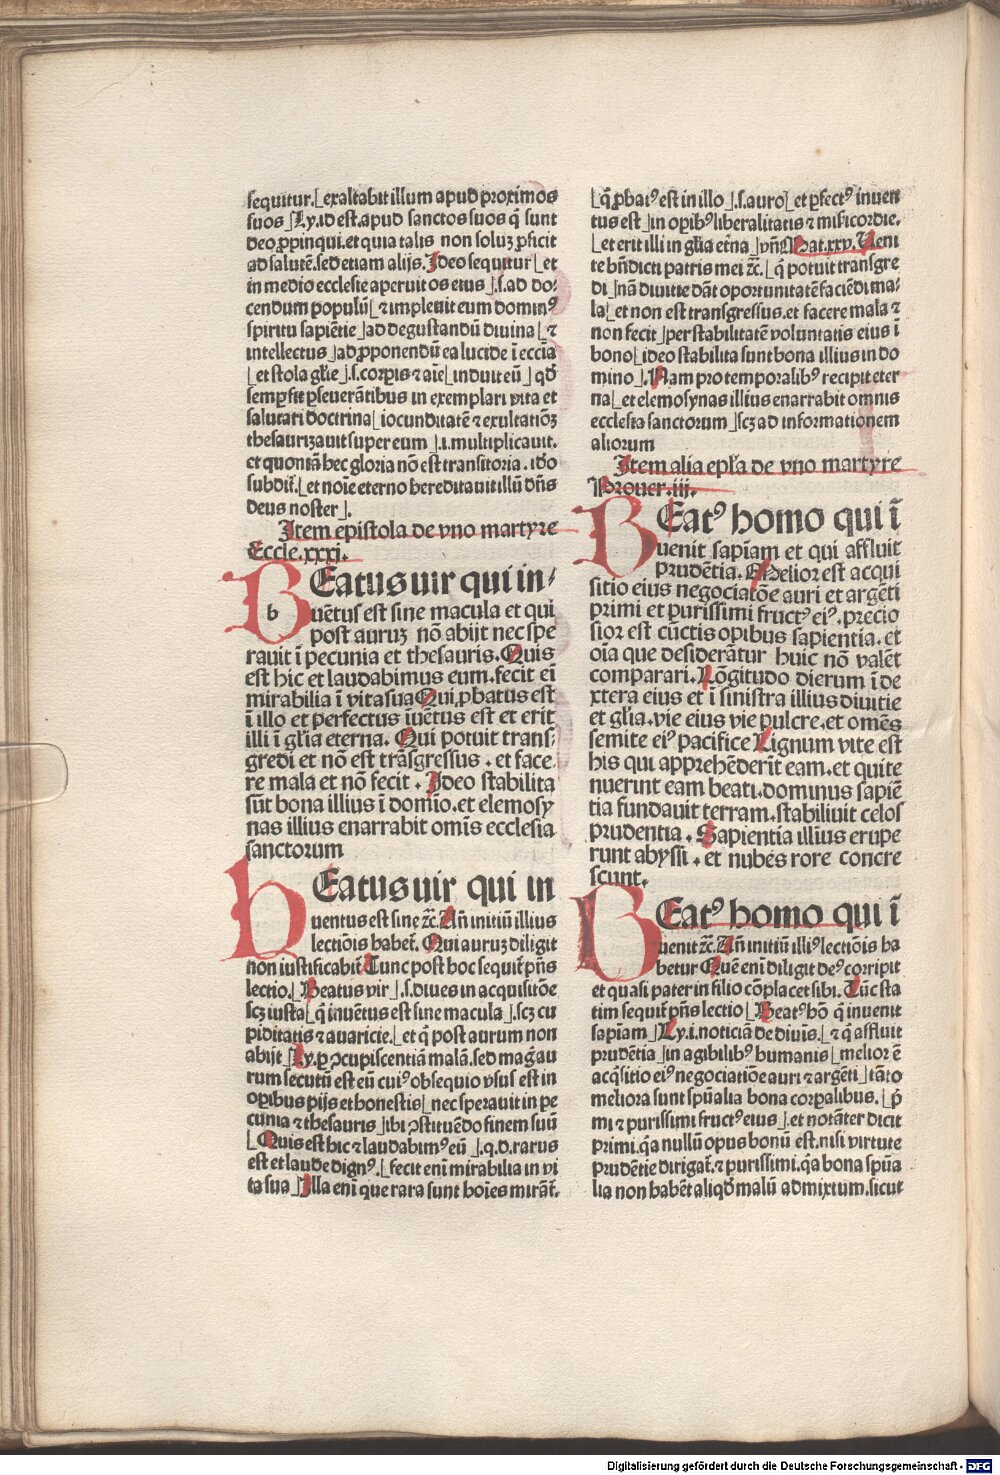 sequitur.⌊exaltabit illum apud proximos
suos⌋Ly.id est.apud sanctos suos q̄ sunt
deo ꝓpinqui.et quia talis non soluꝫ ꝓficit
ad salutē.sed etiam alijs.Ideo sequitur⌊et
in medio ecclesie aperuit os eius⌋.s.ad do⸗
cendum populū⌊⁊ impleuit eum dominꝰ
spiritu sapiētie⌋ad degustandū diuina⌊⁊
intellectus⌋ad ꝓponendū ea lucide ī eccīa
⌊et stola gl̄ie⌋.s.corꝑis ⁊ aīe⌊induit eū⌋qd̄
semꝑ fit ꝑseuerātibus in exemplari vita et
salutari doctrina⌊iocunditatē ⁊ exultatiōꝫ
thesaurizauit super eum⌋.i.multiplicauit.
et quoniā hec gloria nō est transitoria.ido
subdit̄.⌊et noīe eterno hereditauit illū dn̄s
deus noster⌋.
Item epistola de vno martyre
Eccle.xxxi.
BEatus uir qui in⸗
b
uētus est sine macula et qui
post auruꝫ nō abijt nec spe
rauit ī pecunia et thesauris.Quis
est hic et laudabimus eum.fecit eī
mirabilia ī vita sua Qui ꝓbatus est
ī illo et perfectus īuētus est et erit
illi ī gl̄ia eterna. Qui potuit trans⸗
gredi et nō est trāsgressus.et face⸗
re mala et nō fecit. Ideo stabilita
sūt bona illius ī domīo.et elemosy
nas illius enarrabit omīs ecclesia
sanctorum
bEatus uir qui in
uentus est sine ⁊c̄.An̄ initiū illius
lectiōis habet̄. Qui auruꝫ diligit
non iustificabit̄ Tunc post hoc sequit̄ pn̄s
lectio.⌊Beatus vir⌋.s.diues in acquisitōe
scꝫ iusta⌊q̇ inuētus est sine macula⌋.scꝫ cu
piditatis ⁊ auaricie.⌊et q̇ post aurum non
abijt⌋Ly.ꝑ ꝯcupiscentiā malā.sed mag̃ au
rum secutū est eū cuiꝰ obsequio vsus est in
oꝑibus pijs et honestis⌊nec sperauit in pe
cunia ⁊ thesauris⌋ibi ꝯstituēdo finem suū
⌊Quis est hic ⁊ laudabimꝰ eū⌋.q.d.rarus
est et laude dignꝰ.⌊fecit enī mirabilia in vi
ta sua⌋Illa enī que rara sunt hoīes mirāt̄.
⌊q̇ ꝓbatꝰ est in illo⌋.s.auro⌊et ꝑfectꝰ inuen
tus est⌋in oꝑibꝰ liberalitatis ⁊ misericordie.
⌊et erit illi in gl̄ia et̄na⌋vn̄ Mat.xxv.Ueni
te bn̄dicti patris mei ⁊c̄.⌊q̇ potuit transgre
di⌋nā diuitie dāt oportunitatē faciēdi ma⸗
la⌊et non est transgressus.et facere mala ⁊
non fecit⌋per stabilitatē voluntatis eius ī
bono⌊ideo stabilita sunt bona illius in do
mino⌋.Nam pro temporalibꝰ recipit eter
na⌊et elemosynas illius enarrabit omnis
ecclesia sanctorum⌋scꝫ ad informationem
aliorum
Item alia epl̄a de vno martyre
Prouer.iij.
BEatꝰ homo qui ī
uenit sapīam et qui affluit
prudētia. Melior est acqui
sitio eius negociatōe auri et argēti
primi et purissimi fructꝰ eiꝰ.precio
sior est cūctis opibus sapientia.et
oīa que desiderātur huic nō valēt
comparari. Lōgitudo dierum ī de
xtera eius et ī sinistra illius diuitie
et gl̄ia.vie eius vie pulcre.et omēs
semite eiꝰ pacifice Lignum vite est
his qui apprehēderīt eam.et qui te
nuerint eam beati.dominus sapiē
tia fundauit terram.stabiliuit celos
prudentia. Sapientia illīus erupe
runt abyssi.et nubes rore concre
scunt.
BEatꝰ homo qui ī
uenit ⁊c̄.An̄ initiū illiꝰ lectiōis ha
betur Quē enī diligit deꝰ corripit
et quasi pater in filio cōplacet sibi. Tūc sta
tim sequit̄ pn̄s lectio⌊Beatꝰ hō q̇ inuenit
sapīam⌋Ly.i.noticiā de diuīs.⌊⁊ q̇ affluit
prudētia⌋in agibilibꝰ humanis⌊melior ē
acq̇sitio eiꝰ negociatiōe auri ⁊ argēti⌋tāto
meliora sunt spūalia bona corꝑalibus.⌊p̄
mi ⁊ purissimi fructꝰ eius⌋.et notāter dicit
primi.q̇a nullū opus bonū est.nisi virtute
prudētie dirigat̄.⁊ purissimi.q̇a bona spūa
lia non habēt aliqd̄ malū admixtum.sicut
Digitalisierung gefördert durch die Deutsche Forschungsgemeinschaft - DFG